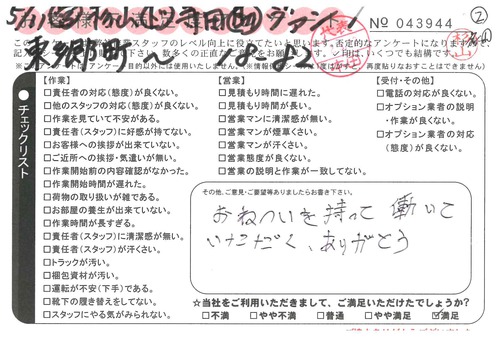 NO 043944
②
スタッフのレベル向上に役立てたいと思います。否定的なアンケートになりますので、
チェックリスト
【作業】
□責任者の対応(態度)が良くない。
□他のスタッフの対応(態度)が良くない。
□作業を見ていて不安がある。
□責任者(スタッフ)に好感が持てない。
□お客様への挨拶が出来ていない。
□ご近所への挨拶・気遣いが無い。
□作業開始前の内容確認がなかった。
□作業開始時間が遅れた。
□荷物の取り扱いが雑である。
□お部屋の養生が出来ていない。
□作業時間が長すぎる。
□責任者(スタッフ)に清潔感が無い。
□責任者(スタッフ)が汗くさい。
□トラックが汚い。
□梱包資材が汚い。
□運転が不安(下手)である。
□靴下の履き替えをしてない。
□スタッフにやる気がみられない。
【営業】
□見積もり時間に遅れた。
□見積もり時間が長い。
□営業マンに清潔感が無い。
□営業マンが煙草くさい。
□営業マンが汗くさい。
□営業態度が良くない。
□営業の説明と作業が一致してない。
【受付・その他】
□電話の対応が良くない。
□オプション業者の説明
・作業が良くない。
□オプション業者の対応
(態度)が良くない。
その他、ご意見・ご要望等ありましたらお書き下さい。
おねついを持って 働いて
いただく、ありがとう
☆当社をご利用いただきまして、ご満足いただけたでしょうか?
□不満 □やや不満 □普通 □やや満足 ☑満足